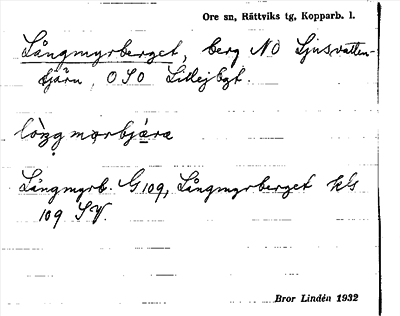 Ore sn, Rättviks tg, Kopparb. l.
Långmyrberget, berg NO Ljusvatten-
tjärn, OSO Lillejbgt.
Långmyrb. G 109, Långmyrberget k's
109 SV.
Bror Lindén 1932